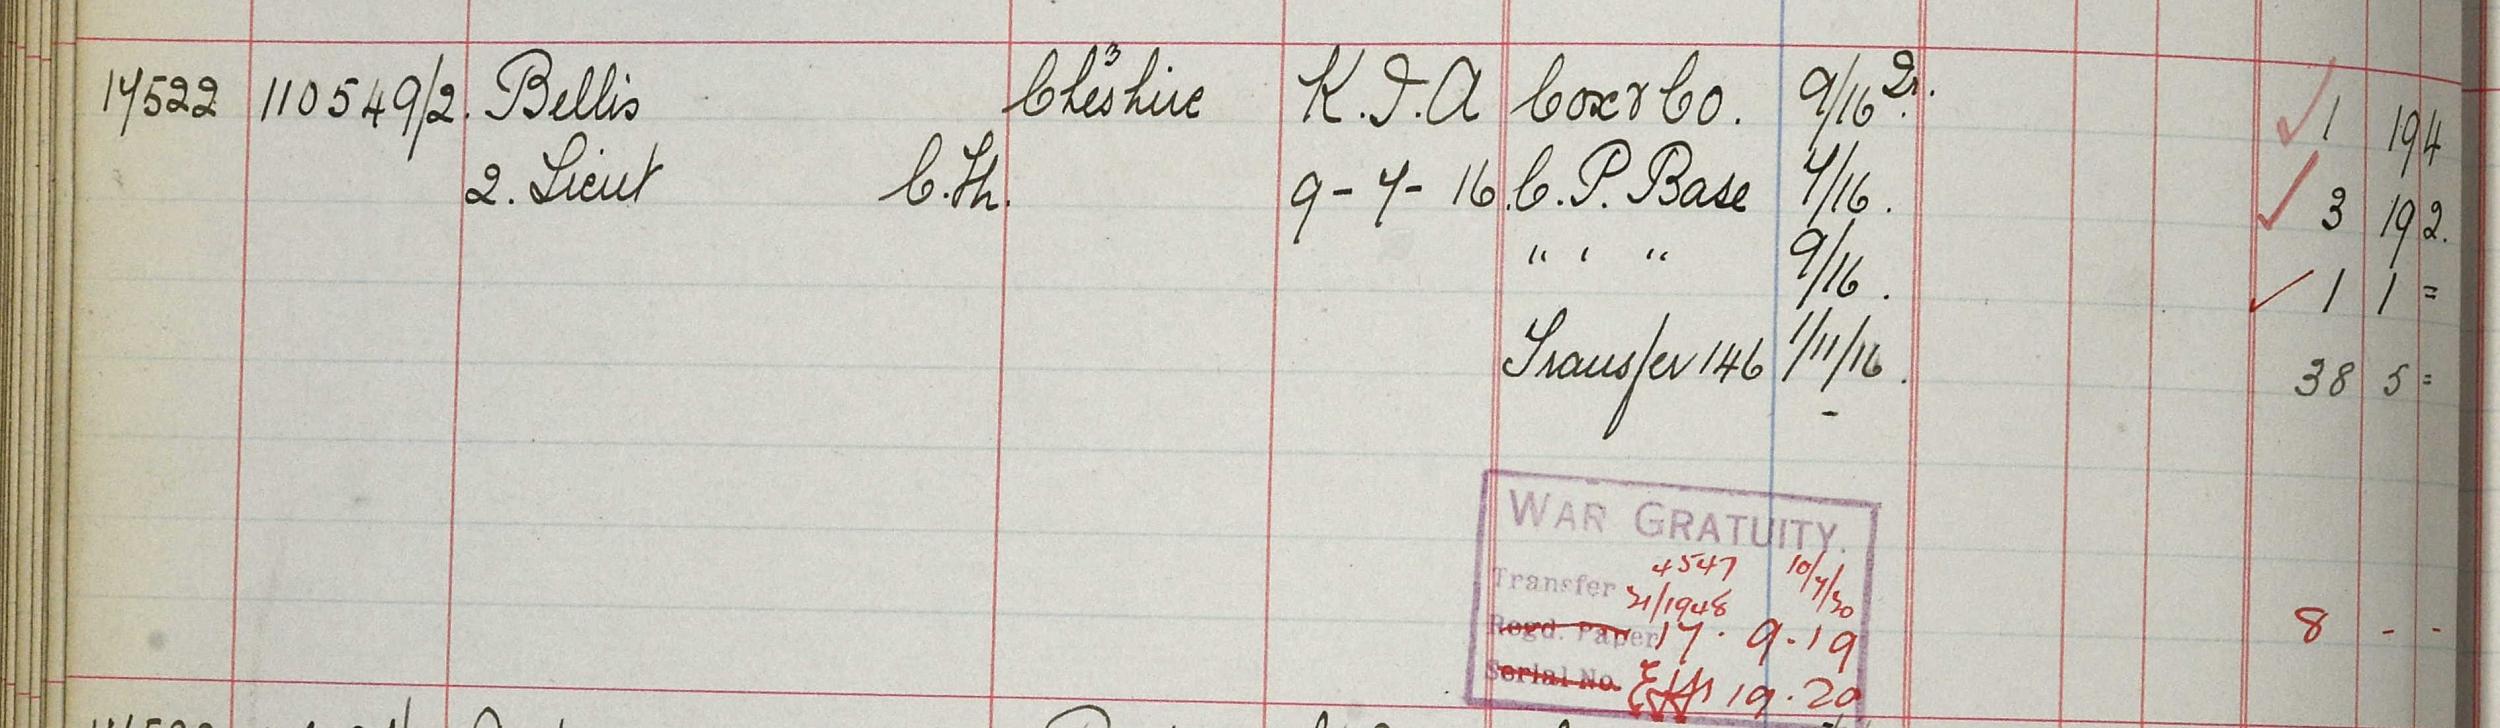 17522 110549/2. Bellis 3 Cheshire K.I.A Cox & Co. 9/16 Dr. 1 19 4
2. Lieut C.Th. 9-7-16. C.P. Base 7/16. 3 19 2.
" " " 9/16. 1 1 =
Transfer 146 1/11/16. 38 5 =
WAR GRATUITY.
Transfer 4547 10/7/20
21/1948
Regd. Paper 17.9.19 8 - -
Serial No. 19.20